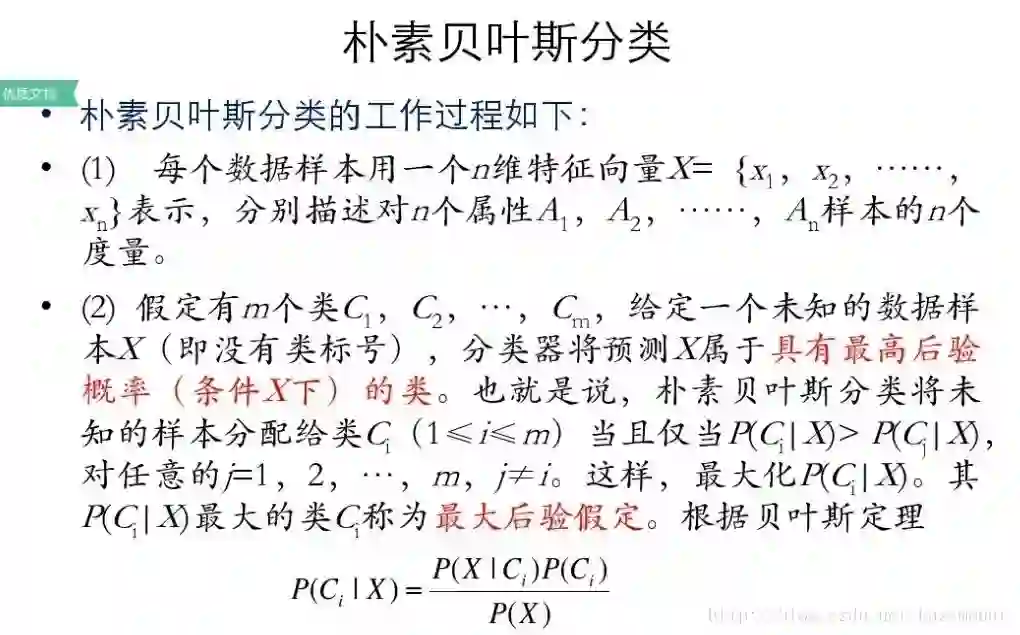 朴素贝叶斯分类
优质文档
• 朴素贝叶斯分类的工作过程如下：
• (1) 每个数据样本用一个n维特征向量X= {x1，x2，……，
xn}表示，分别描述对n个属性A1，A2，……，An样本的n个
度量。
• (2) 假定有m个类C1，C2，…，Cm，给定一个未知的数据样
本X（即没有类标号），分类器将预测X属于具有最高后验
概率（条件X下）的类。也就是说，朴素贝叶斯分类将未
知的样本分配给类Ci（1≤i≤m）当且仅当P(Ci|X)> P(Cj|X)，
对任意的j=1，2，…，m，j≠i。这样，最大化P(Ci|X)。其
P(Ci|X)最大的类Ci称为最大后验假定。根据贝叶斯定理
P(Ci|X)=P(X|Ci)P(Ci)/P(X)